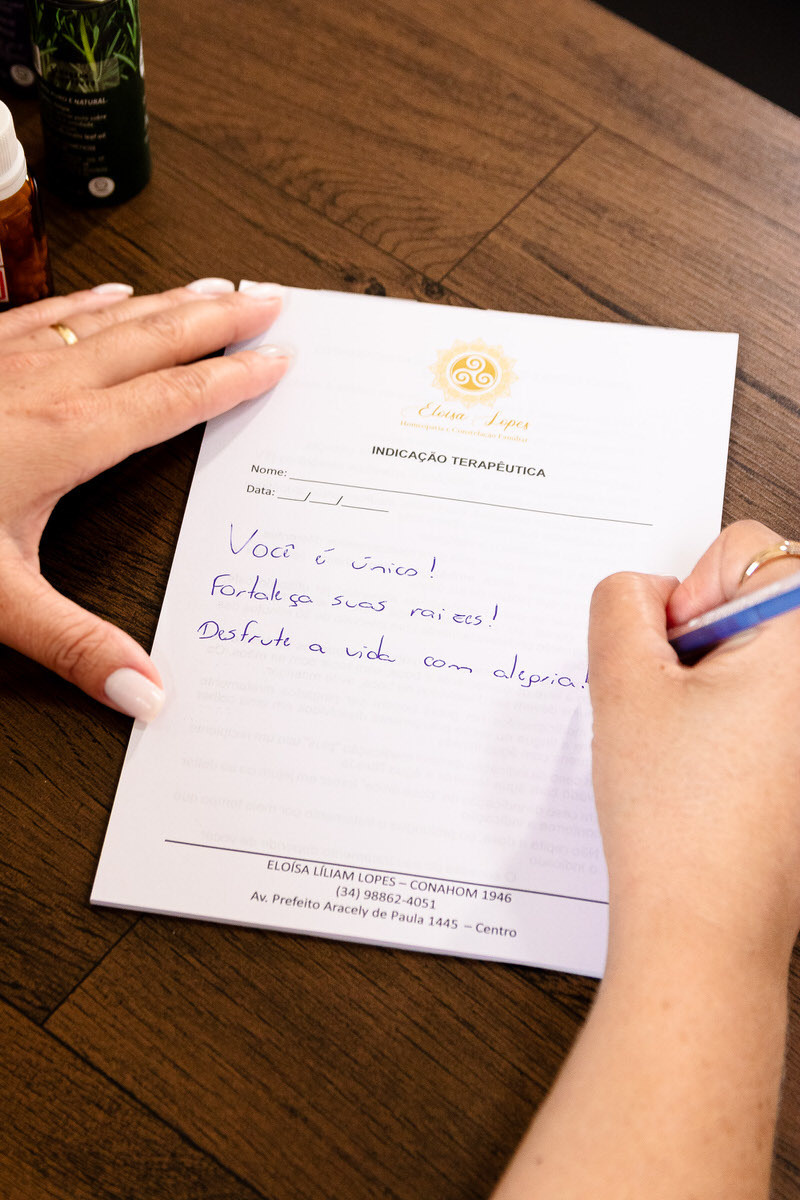 O E NATURAL.
Eloísa Lopes
Homeopatia e Constelação Familiar
INDICAÇÃO TERAPÊUTICA
Nome:
Data: __/__/____
Você é único!
Fortaleça suas raizes!
Desfrute a vida com alegria!
ELOÍSA LÍLIAM LOPES – CONAHOM 1946
(34) 98862-4051
Av. Prefeito Aracely de Paula 1445 – Centro